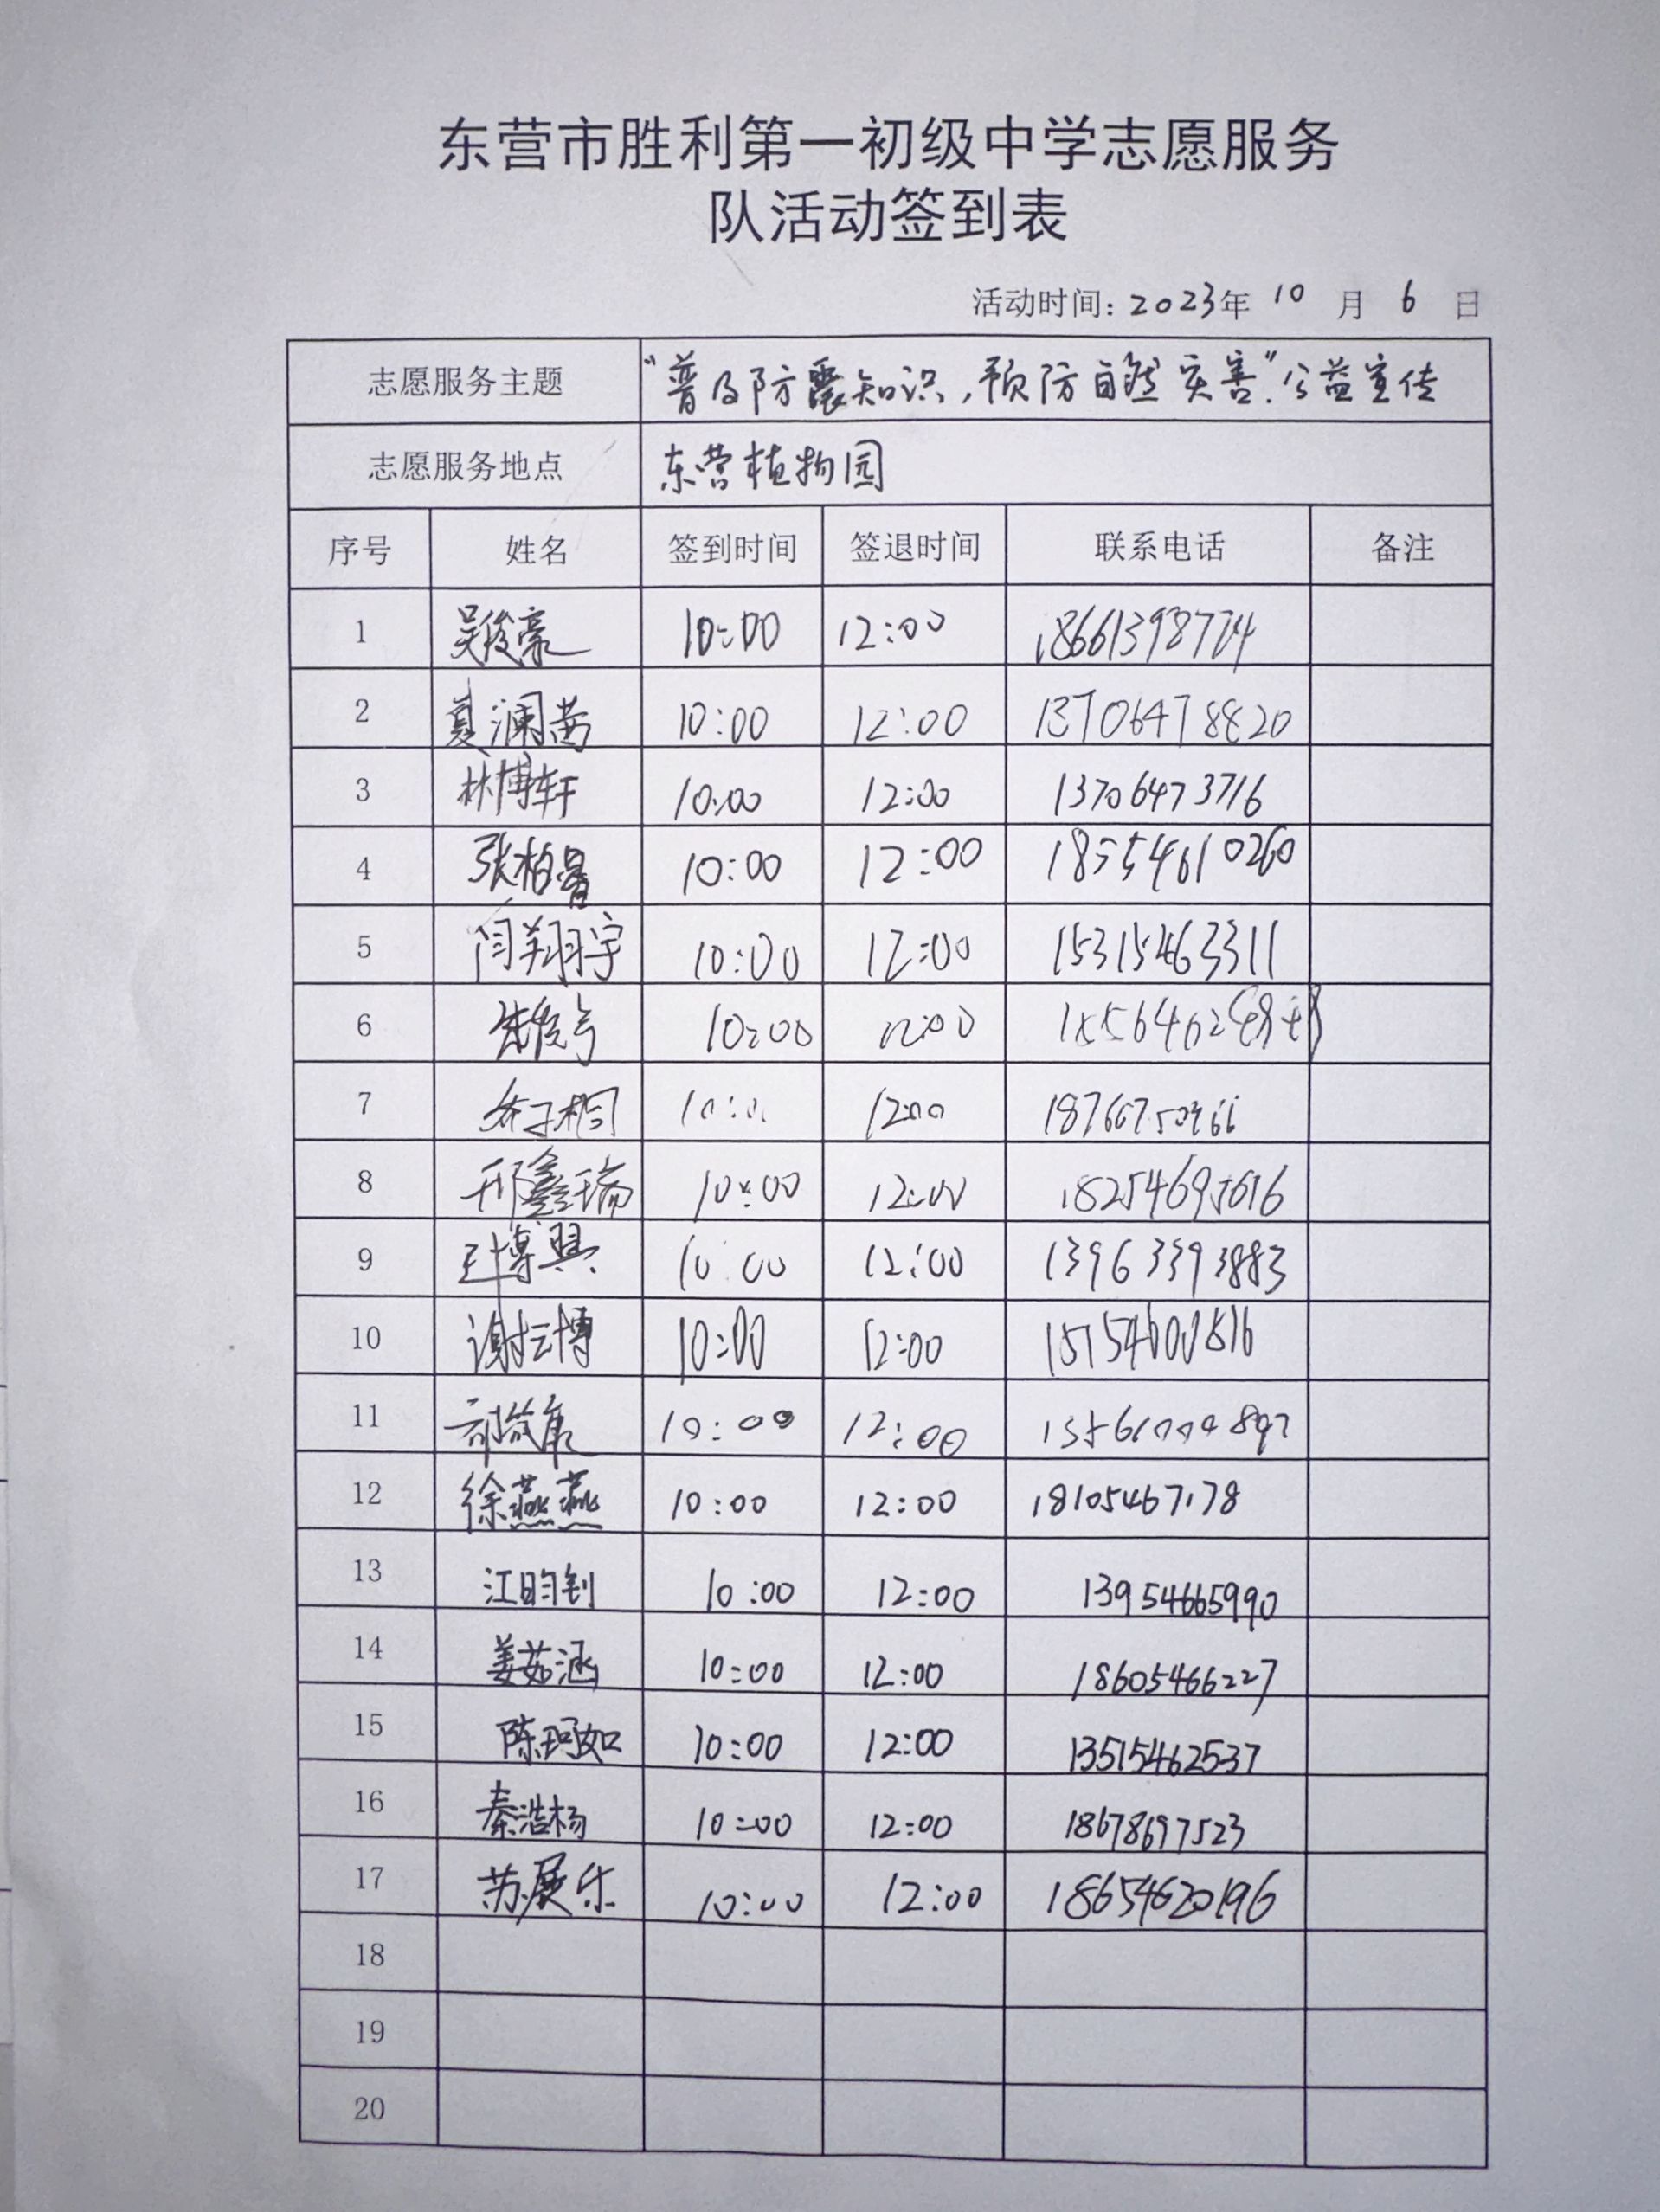 东营市胜利第一初级中学志愿服务
队活动签到表
活动时间：2023年 10 月 6 日
志愿服务主题 “普及防震知识，预防自然灾害”公益宣传
志愿服务地点 东营植物园
序号 姓名 签到时间 签退时间 联系电话 备注
1 吴俊豪 10:00 12:00 18661398774
2 夏澜茜 10:00 12:00 13706478820
3 林博轩 10:00 12:00 13706473716
4 张柏 10:00 12:00 18554610260
5 闫翔宇 10:00 12:00 15315463311
6 10:00 12:00
7 乔子桐 10:00 12:00
8 邢鑫瑞 10:00 12:00 18254695616
9 王博 10:00 12:00 13963393883
10 谢云博 10:00 12:00
11 10:00 12:00
12 徐燕燕 10:00 12:00 18105467178
13 江昀钊 10:00 12:00 13954665990
14 姜茹涵 10:00 12:00 18605466227
15 陈珂如 10:00 12:00 13515462537
16 秦浩杨 10:00 12:00 18678697523
17 苏展乐 10:00 12:00 18654620196
18
19
20